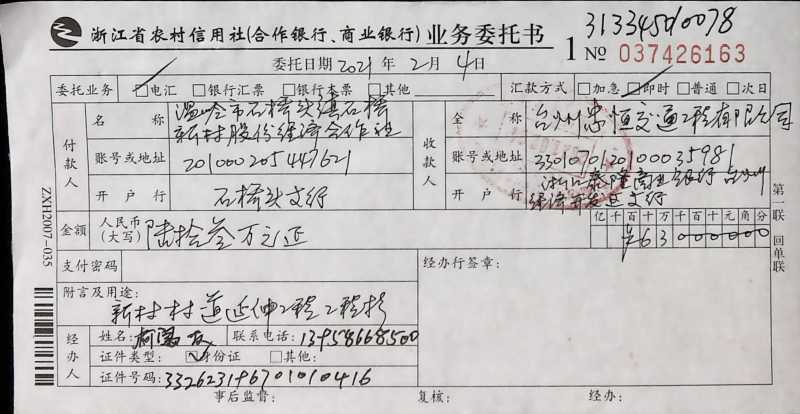 31334500078
浙江省农村信用社(合作银行、商业银行)业务委托书
1 № 037426163
委托日期 2021年 2月 4日
委托业务 ☑电汇 □银行汇票 □银行本票 □其他 汇款方式 □加急 ☑即时 □普通 □次日
付款人
名称 温岭市石桥头镇石桥
新村股份经济合作社
账号或地址 201000205447621
开户行 石桥头支行
收款人
全称 台州忠恒交通工程有限公司
账号或地址 3301070120100035981
开户行 浙江泰隆商业银行台州
经济开发区支行
金额 人民币(大写) 陆拾叁万元正
亿千百十万千百十元角分
¥63000000
支付密码
经办行签章:
附言及用途:
新村村道延伸工程工程款
经办人
姓名: 联系电话: 13958668500
证件类型: ☑身份证 □其他:
证件号码: 332623196701010416
事后监督: 复核: 经办:
第一联 回单联
ZXH2007-035